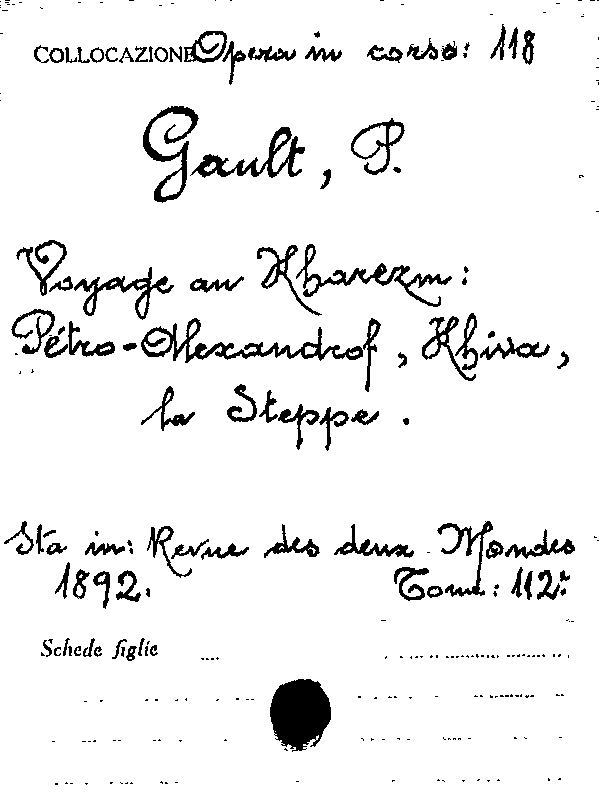 COLLOCAZIONE Opera in corso: 118
Gault, P.
Voyage au Kharezm:
Pétro-Alexandrof, Khiva,
la Steppe.
Sta in: Revue des deux Mondes
1892. Tom.: 112º
Schede figlie